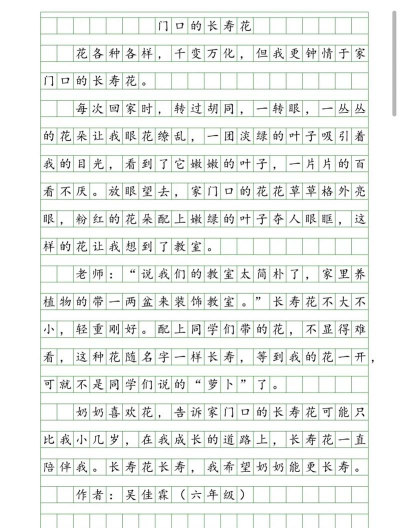 门口的长寿花
花各种各样，千变万化，但我更钟情于家
门口的长寿花。
每次回家时，转过胡同，一转眼，一丛丛
的花朵让我眼花缭乱，一团淡绿的叶子吸引着
我的目光，看到了它嫩嫩的叶子，一片片的百
看不厌。放眼望去，家门口的花花草草格外亮
眼，粉红的花朵配上嫩绿的叶子夺人眼眶，这
样的花让我想到了教室。
老师：“说我们的教室太简朴了，家里养
植物的带一两盆来装饰教室。”长寿花不大不
小，轻重刚好。配上同学们带的花，不显得难
看，这种花随名字一样长寿，等到我的花一开，
可就不是同学们说的“萝卜”了。
奶奶喜欢花，告诉家门口的长寿花可能只
比我小几岁，在我成长的道路上，长寿花一直
陪伴我。长寿花长寿，我希望奶奶能更长寿。
作者：吴佳霖（六年级）